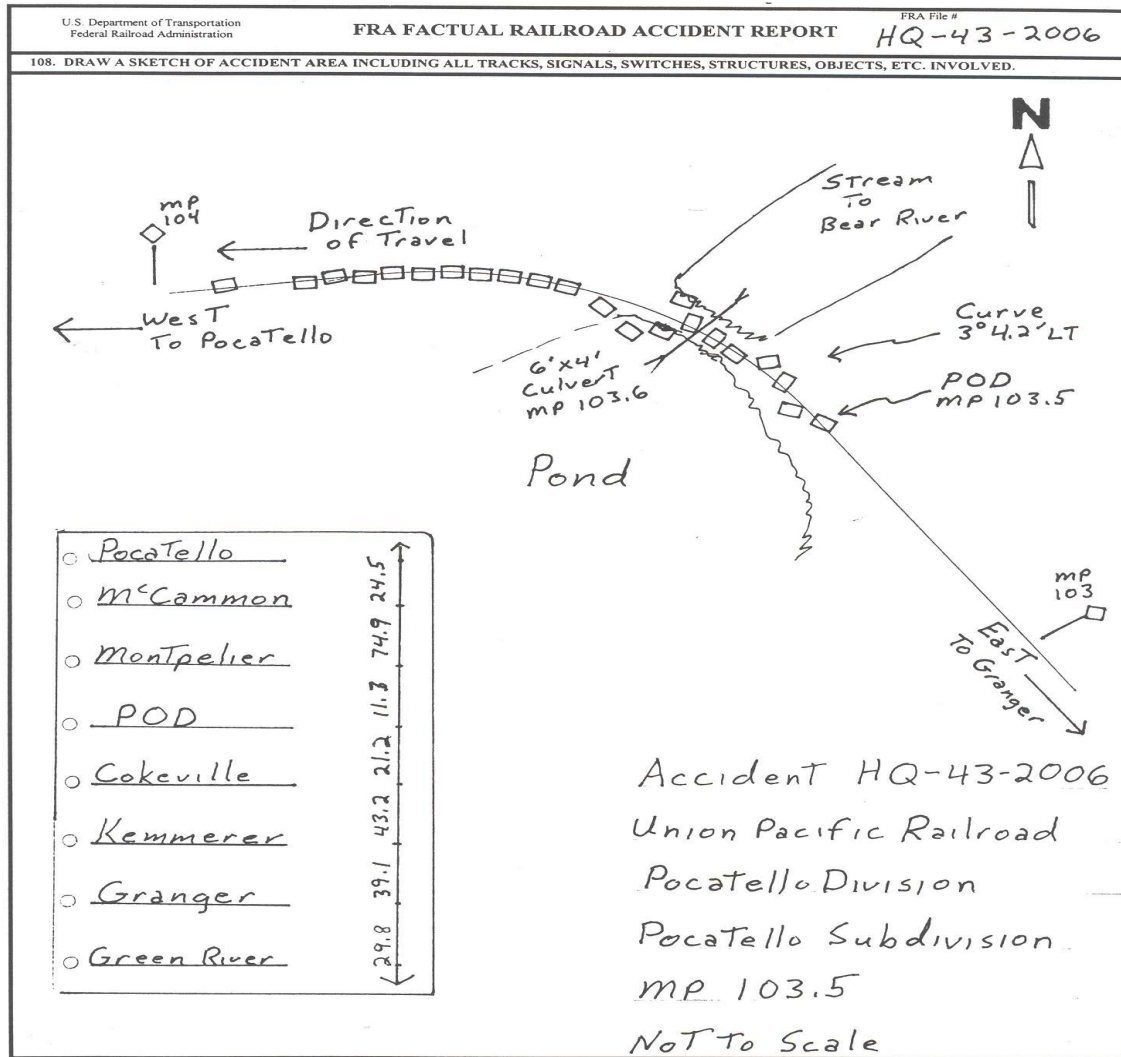 U.S. Department of Transportation
Federal Railroad Administration
FRA FACTUAL RAILROAD ACCIDENT REPORT
FRA File #
HQ-43-2006
108. DRAW A SKETCH OF ACCIDENT AREA INCLUDING ALL TRACKS, SIGNALS, SWITCHES, STRUCTURES, OBJECTS, ETC. INVOLVED.
N
mp
104
Direction
of Travel
STream
To
Bear River
WesT
To PocaTello
Curve
3°4.2' LT
6'x4'
CulverT
mp 103.6
POD
mp 103.5
Pond
mp
103
EasT
To Granger
PocaTello
24.5
McCammon
74.9
MonTpelier
11.3
POD
21.2
Cokeville
43.2
Kemmerer
39.1
Granger
29.8
Green River
AccidenT HQ-43-2006
Union Pacific Railroad
PocaTello Division
PocaTello Subdivision
mp 103.5
NoT To Scale